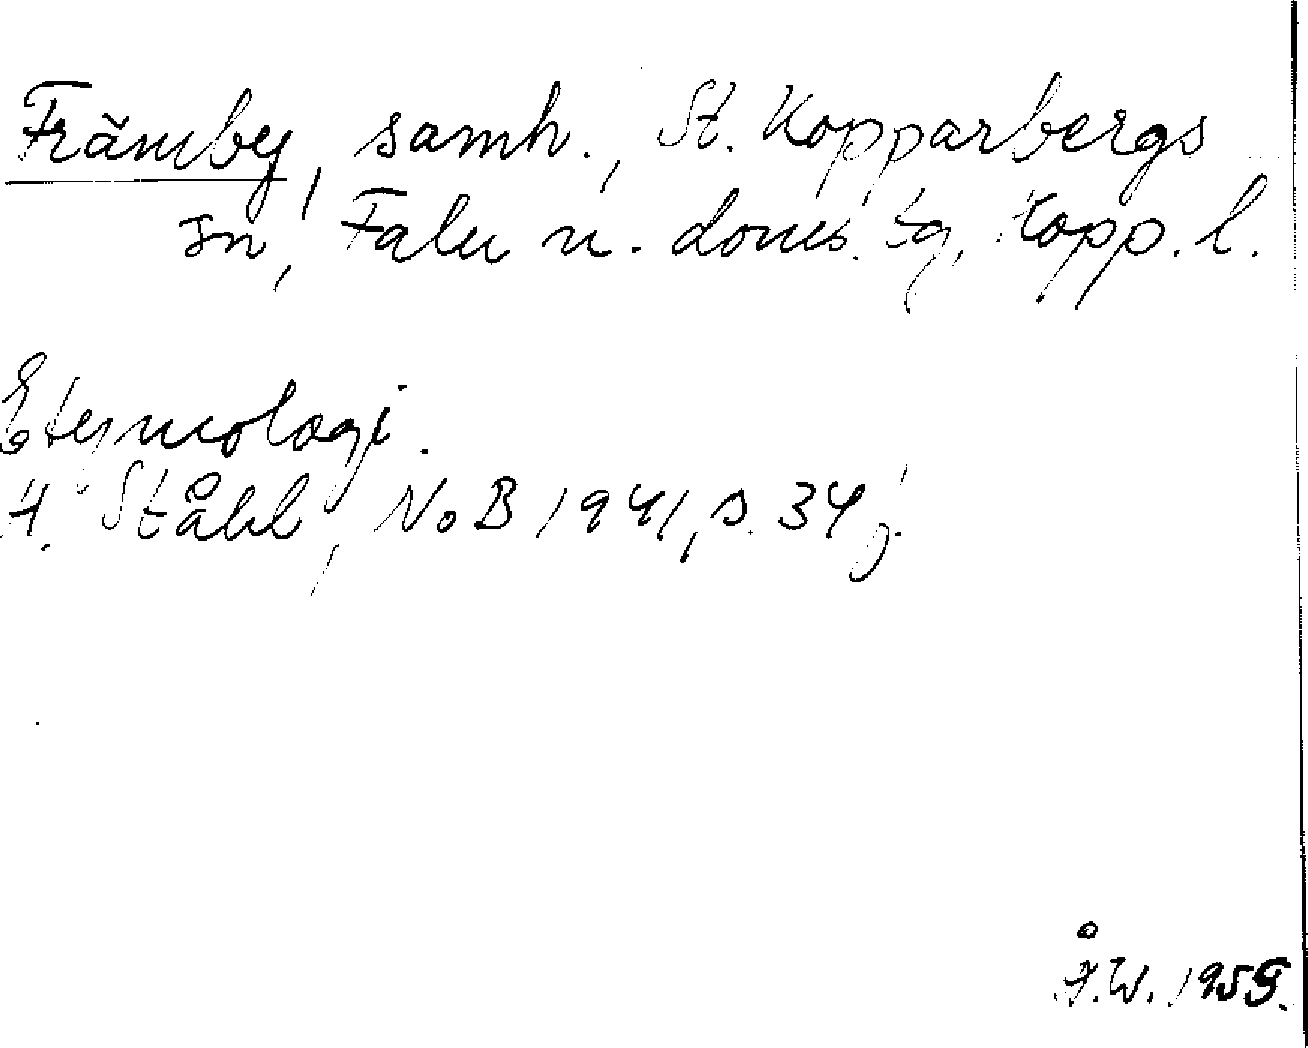 Främby, samh., St. Kopparbergs
sn, Falu n. doms. tg, Kopp. l.
Etymologi.
H. Ståhl, NoB 1941, s. 34 j.
Å.W. 1959.